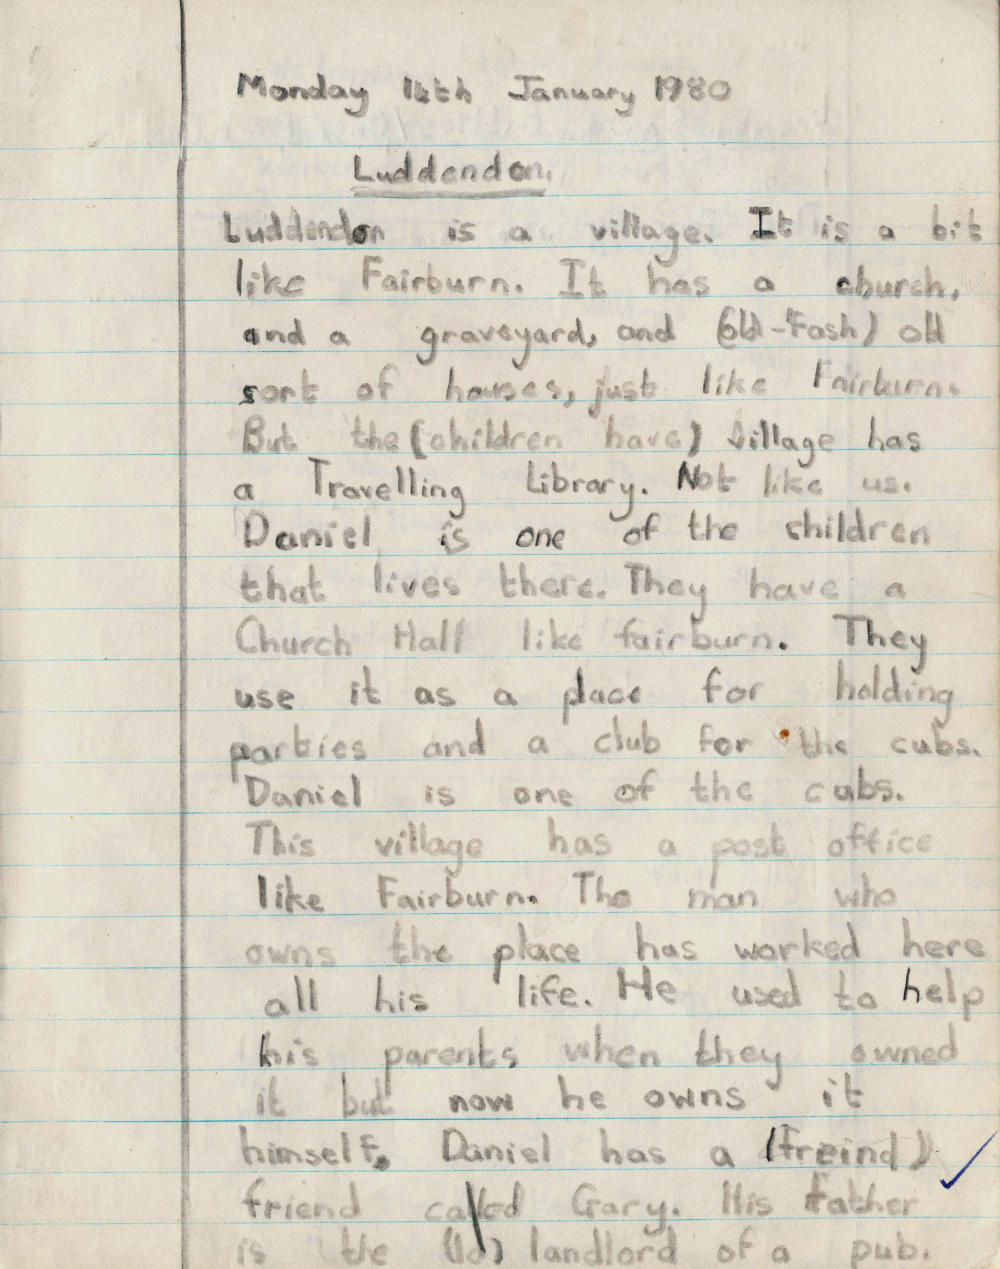 Monday 14th January 1980
Luddendon.
Luddendon is a village. It is a bit
like Fairburn. It has a church,
and a graveyard, and (Old-fash) old
sort of houses, just like Fairburn.
But the (children have) village has
a Travelling Library. Not like us.
Daniel is one of the children
that lives there. They have a
Church Hall like fairburn. They
use it as a place for holding
parties and a club for the cubs.
Daniel is one of the cubs.
This village has a post office
like Fairburn. The man who
owns the place has worked here
all his life. He used to help
his parents when they owned
it but now he owns it
himself. Daniel has a (freind)
friend called Gary. His Father
is the (ld) landlord of a pub.